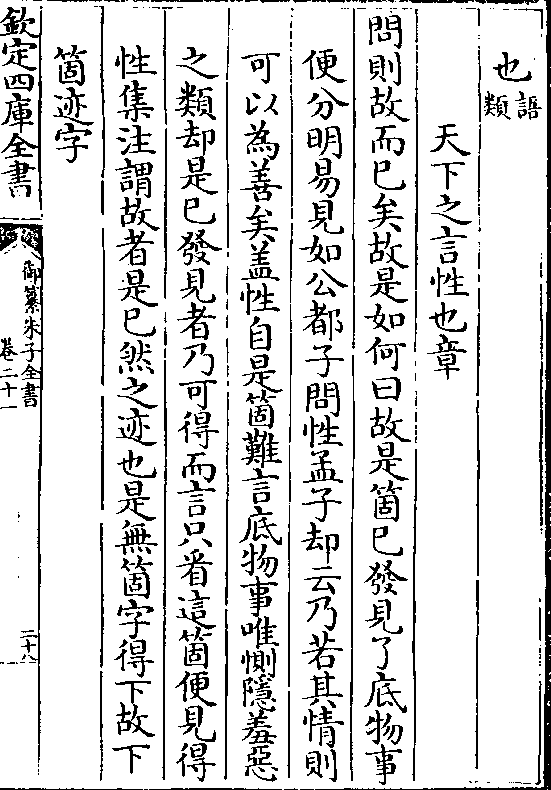 也語類
天下之言性也章
問則故而巳矣故是如何曰故是箇巳發見了底物事
便分明易見如公都子問性孟子却云乃若其情則
可以為善矣盖性自是箇難言底物事唯惻隱羞惡
之類却是巳發見者乃可得而言只看這箇便見得
性集注謂故者是巳然之迹也是無箇字得下故下
箇迹字
欽定四庫全書
御纂朱子全書
卷二十一
二十八